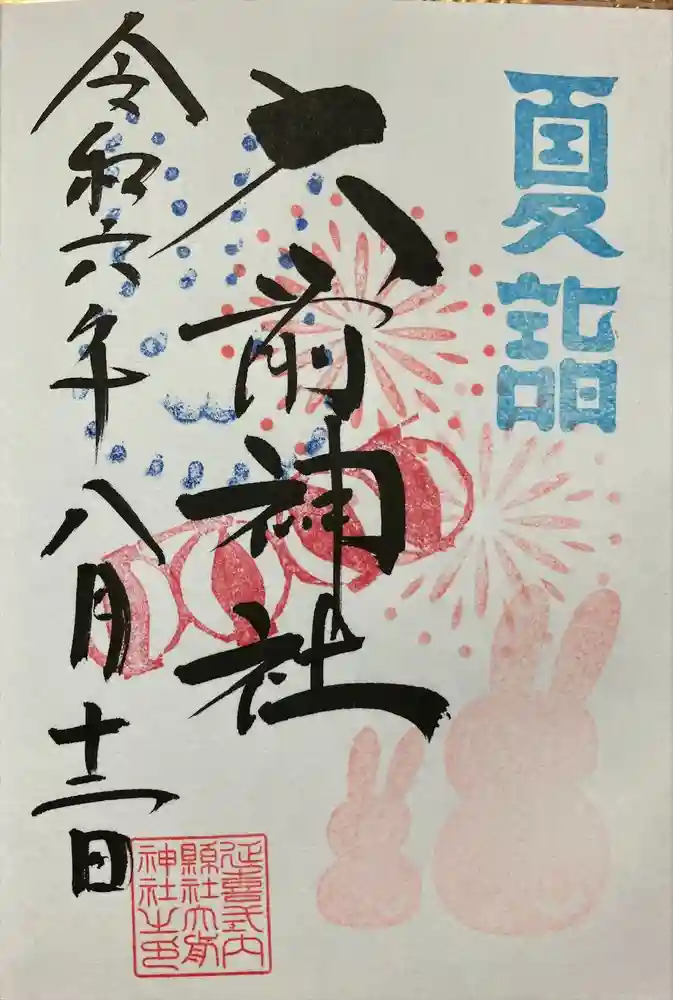 夏詣
大前神社
令和六年八月十二日
延喜式内
縣社大前
神社之印